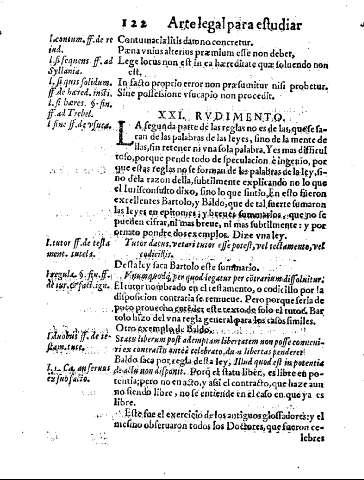 122 Arte legal para estudiar
l. contum. ff. de re iud.
Contumacia litis dat non concretur.
Pæna vnius alterius præmium esse non debet,
l. si sequens ff. ad Syllania.
Lege locus non est in ea hæreditate quæ soluendo non est.
l. si quis solidum. ff. de hæred. insti.
In facto proprio error non præsumitur nisi probetur.
l. si hæres. §. fin. ff. ad Trebel.
Sine possessione vsucapio non procedit.
l. sine ff. de vsuca.
XXI. RVDIMENTO.
LA segunda parte de las reglas no es de las, que se sa-
ran de las palabras de las leyes, sino de la mente de
llas, sin retener ni vna sola palabra. Y es mas dificul
toso, porque pende todo de especulacion è ingenio, por
que estas reglas no se forman de las palabras de la ley, si-
no dela razon della, subtilmente explicando no lo que
el Iurisconsulto dixo, sino lo que sintio, En esto fueron
excellentes Bartolo, y Baldo, que de tal suerte sumaron
las leyes en epitomes, y breues sumarios, que no se
pueden cifrar, ni mas breue, ni mas subtilmente: y por
ornato pondre dos exemplos. Dize vna ley.
l. tutor ff. de testa ment. tutela.
Tutor datus, vetari tutor esse potest, vel testamento, vel
codicillis.
Desta ley saca Bartolo este summario.
l. regula §. fin. ff. de iur. & fact. ign.
Nunquodq; per quod legatur per contrarium dissoluitur:
El tutor nombrado en el testamento, o codicillo por la
disposicion contraria se remueue. Pero porque seria de
poco prouecho entender este texto de solo el tutor. Bar
tolo hizo del vna regla general para los casos similes.
Otro exemplo de Baldo.
l. duobus ff. de te- stam. tute.
Statu liberum post ademptam libertatem non posse conueni-
ri ex contractu antea celebrato, da a libertas penderet
Baldo saca por regla desta ley, Illud quod est in potentia
de actu non disponit. Porq̃ el statu liber, es libre en po-
tentia; pero no en acto, y asi el contracto, que haze aun
no siendo libre, no se entiende en el caso en que ya es
libre.
Este fue el exercicio de los antiguos glossadores: y el
mesmo obseruaron todos los Doctores, que fueron ce-
lebres